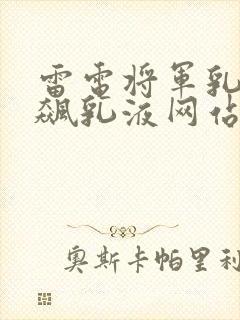 雷电将军乳
飙乳液网佔
奥斯卡帕里利